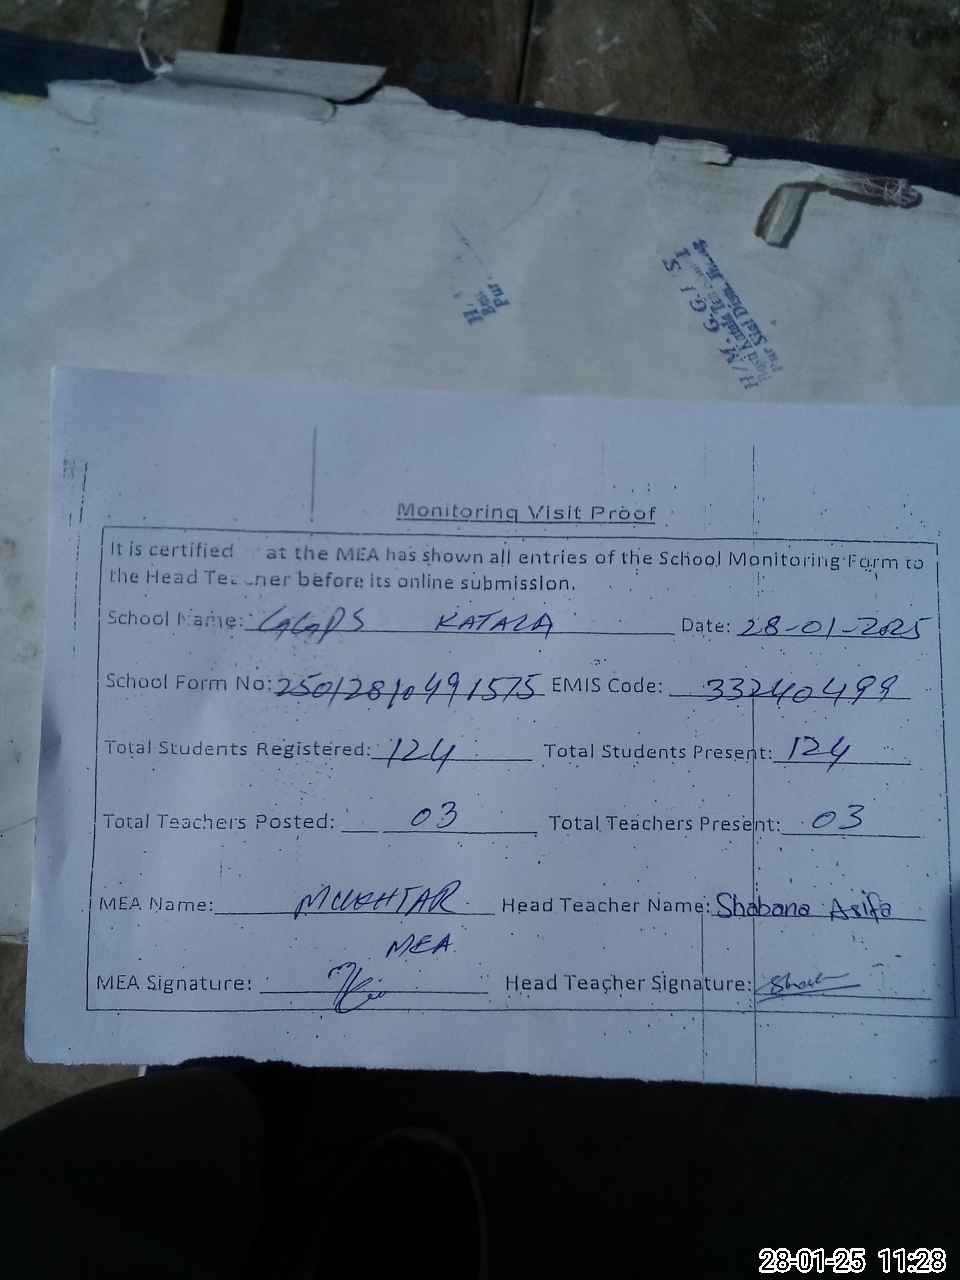 H/M. G.G.P.S
Monitoring Visit Proof
It is certified at the MEA has shown all entries of the School Monitoring Form to
the Head Teacher before its online submission.
School Name: GGPS KATALA Date: 28-01-2025
School Form No: 25012810491575 EMIS Code: 33240499
Total Students Registered: 124 Total Students Present: 124
Total Teachers Posted: 03 Total Teachers Present: 03
MEA Name: MUKHTAR Head Teacher Name: Shabana Asifa
MEA
MEA Signature: Head Teacher Signature:
28-01-25 11:28